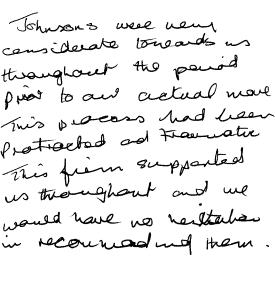 Johnsons were very
considerate towards us
throughout the period
prior to our actual move
This process had been
Protracted and Traumatic
This firm supported
us throughout and we
would have no hesitation
in recommending them.